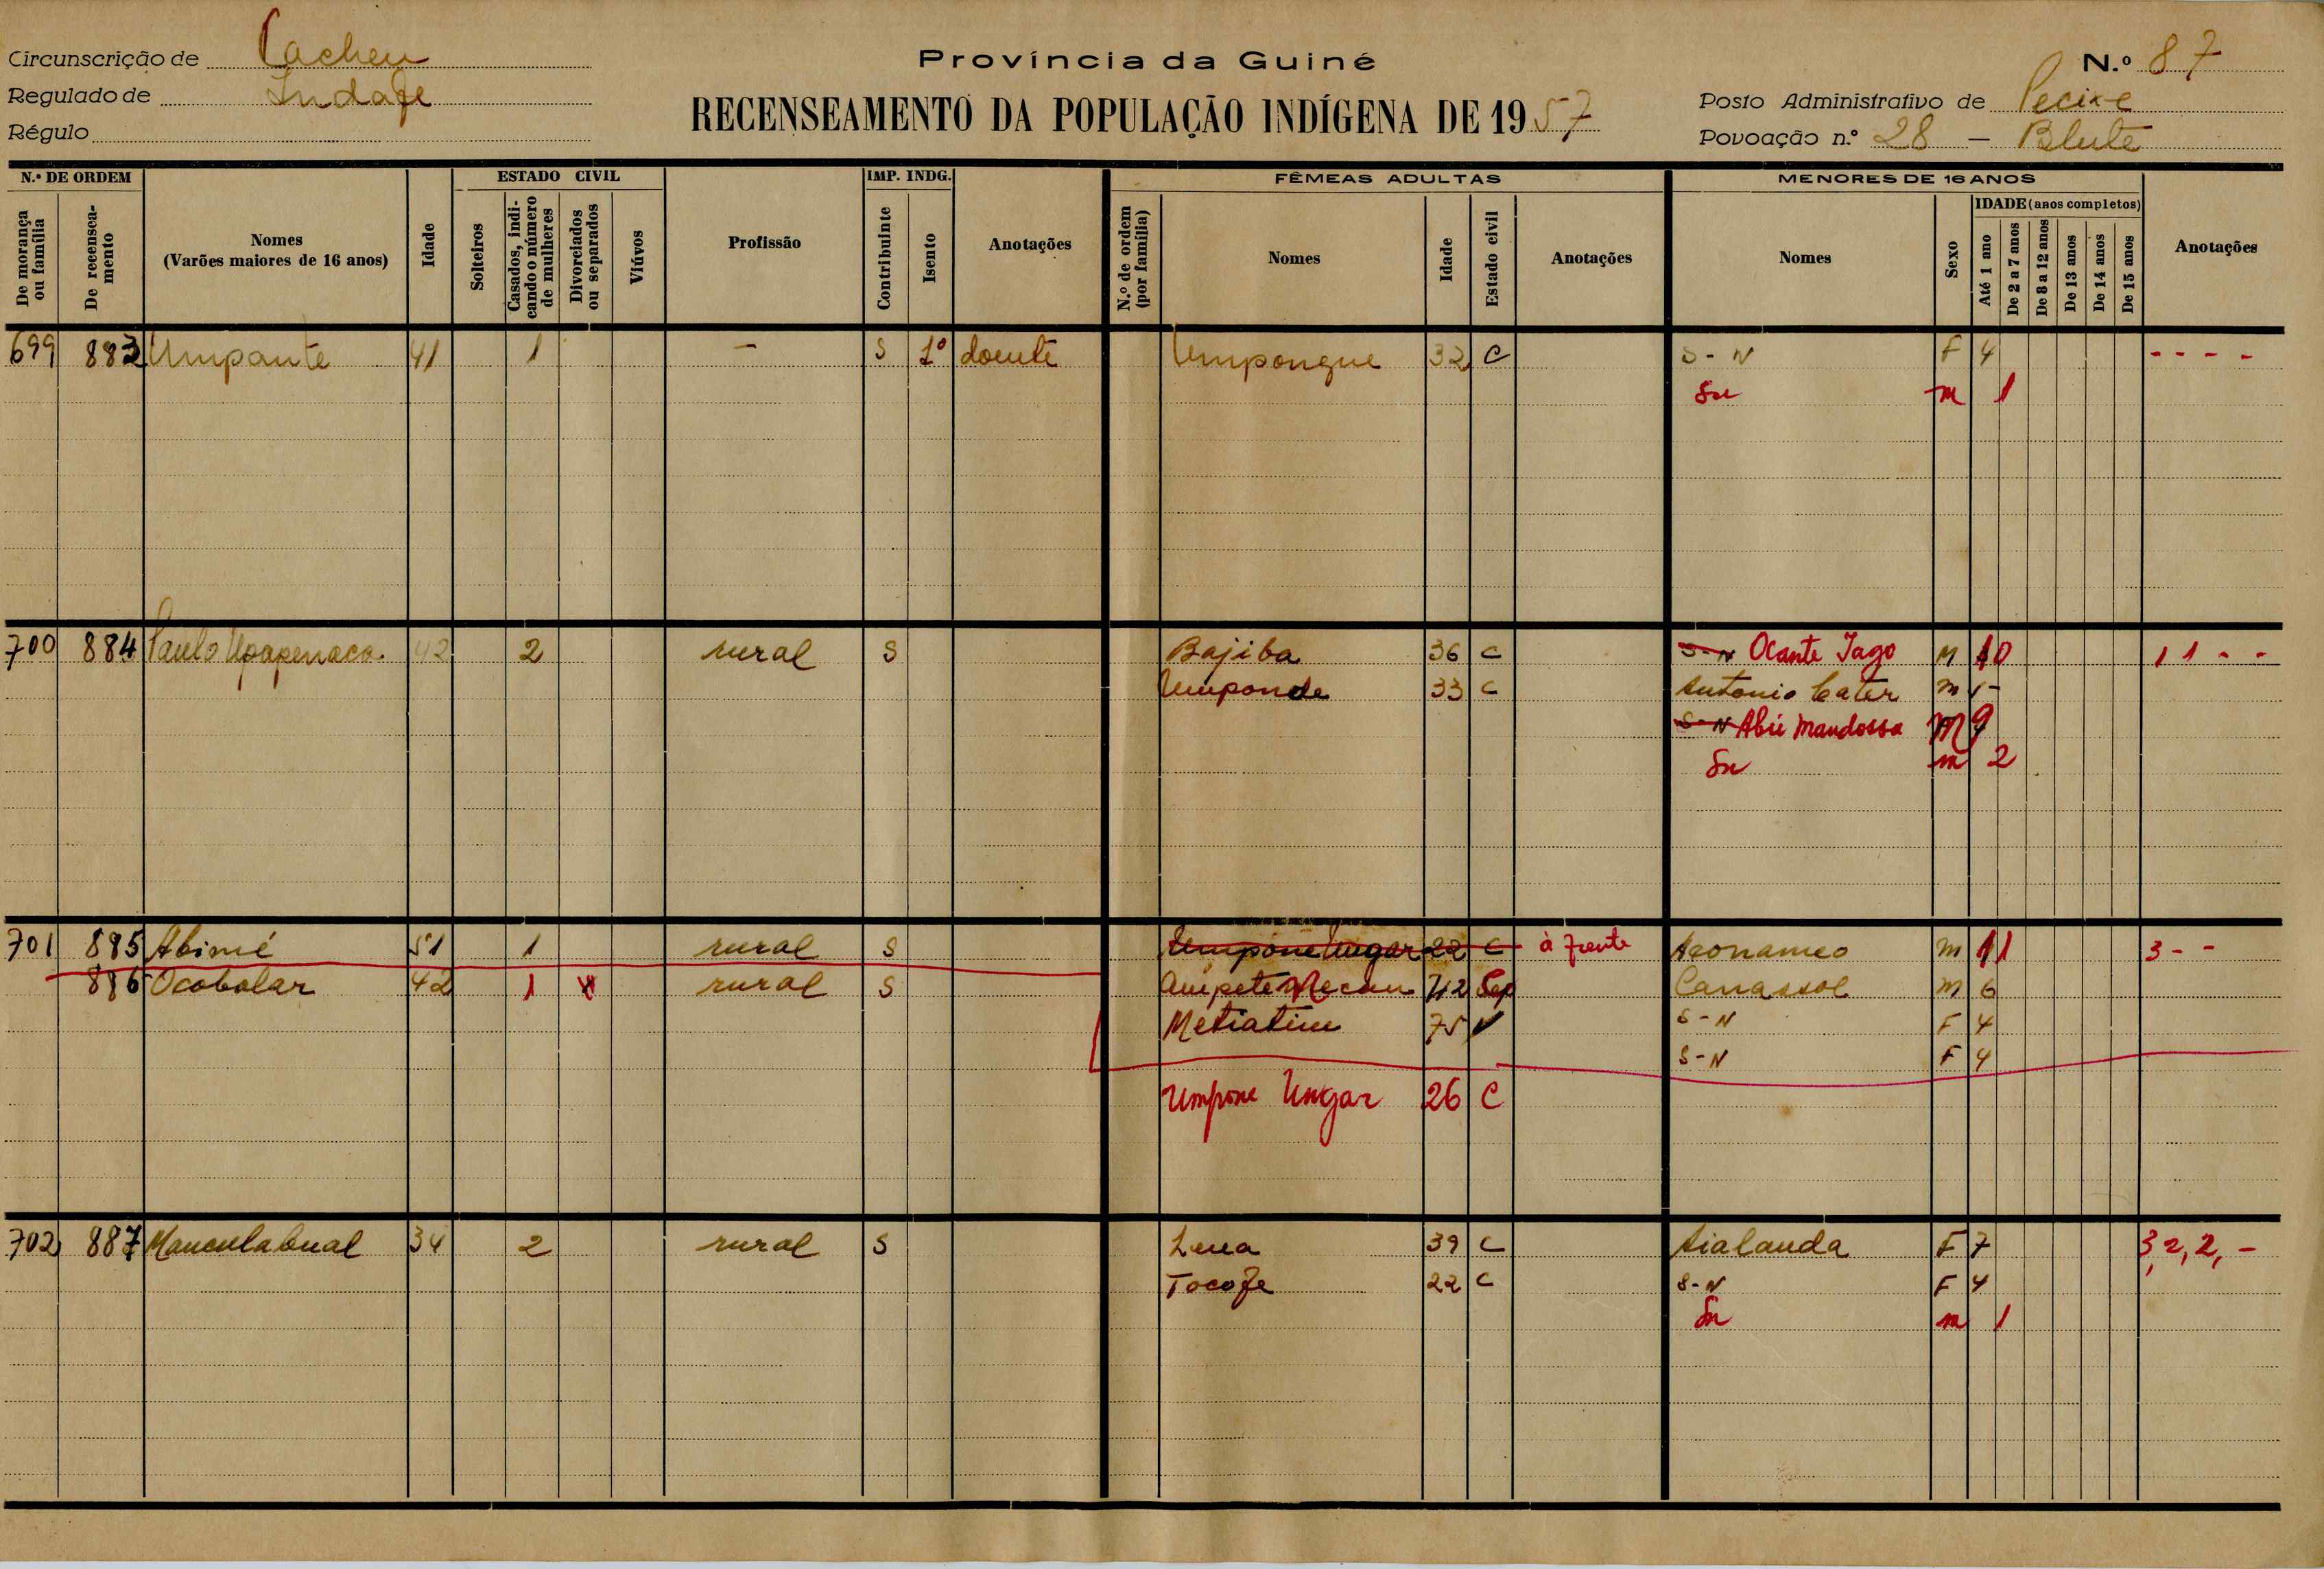 Circunscrição de Cacheu
Regulado de Indafe
Régulo
Província da Guiné
RECENSEAMENTO DA POPULAÇÃO INDÍGENA DE 1957
N.º 87
Posto Administrativo de Pecixe
Povoação n.º 28 — Blute
N.º DE ORDEM
De morança ou família
De recenseamento
Nomes
(Varões maiores de 16 anos)
Idade
ESTADO CIVIL
Solteiros
Casados, indicando o número de mulheres
Divorciados ou separados
Viúvos
Profissão
IMP. INDG.
Contribuinte
Isento
Anotações
FÊMEAS ADULTAS
N.º de ordem (por família)
Nomes
Idade
Estado civil
Anotações
MENORES DE 16 ANOS
Nomes
Sexo
IDADE (anos completos)
Até 1 ano
De 2 a 7 anos
De 8 a 12 anos
De 13 anos
De 14 anos
De 15 anos
Anotações
699 883 Umpante 41 1 — S 1º doente Umpongue 32 C S-N F 4 - - - -
Sn m 1
700 884 Paulo 42 2 rural S Bajiba 36 C S-N Ocante Iago M 10 1 1 - -
Umponde 33 C Antonio Cater m
S-N Abú Mandossa M 9
Sn m 2
701 885 Abimé 51 1 rural S Umpone Ungar 22 C à frente m 11 3 - -
886 Ocobolar 42 1 rural S 42 Sep Canassol m 6
Metiatim 75 V S-N F 4
S-N F 4
Umpone Ungar 26 C
702 887 Manculabual 34 2 rural S Lena 39 C Aialanda F 7 3, 2, 2, -
Tocofe 22 C S-N F 4
Sn m 1